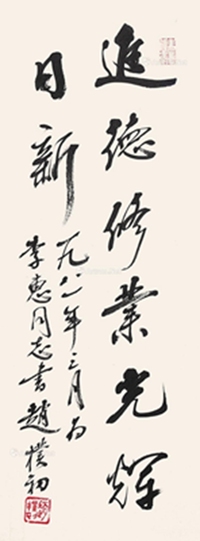 進德修業光輝
日新
一九八一年三月为
李惠同志書趙樸初